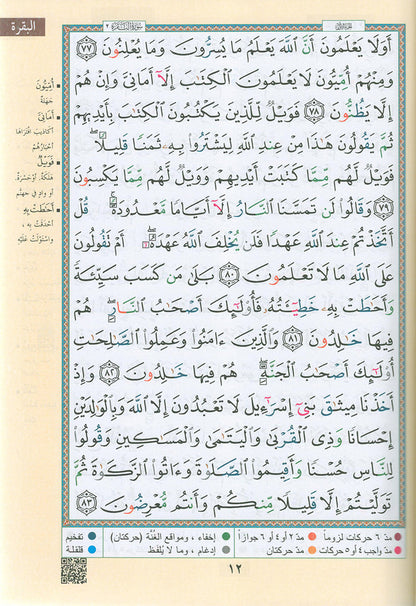 البقرة
سورة البقرة ٢
الجزء الأول
أَوَلَا يَعْلَمُونَ أَنَّ ٱللَّهَ يَعْلَمُ مَا يُسِرُّونَ وَمَا يُعْلِنُونَ ٧٧
وَمِنْهُمْ أُمِّيُّونَ لَا يَعْلَمُونَ ٱلْكِتَٰبَ إِلَّآ أَمَانِىَّ وَإِنْ هُمْ
إِلَّا يَظُنُّونَ ٧٨ فَوَيْلٌ لِّلَّذِينَ يَكْتُبُونَ ٱلْكِتَٰبَ بِأَيْدِيهِمْ
ثُمَّ يَقُولُونَ هَٰذَا مِنْ عِندِ ٱللَّهِ لِيَشْتَرُوا۟ بِهِۦ ثَمَنًا قَلِيلًا ۖ
فَوَيْلٌ لَّهُم مِّمَّا كَتَبَتْ أَيْدِيهِمْ وَوَيْلٌ لَّهُم مِّمَّا يَكْسِبُونَ
٧٩ وَقَالُوا۟ لَن تَمَسَّنَا ٱلنَّارُ إِلَّآ أَيَّامًا مَّعْدُودَةً ۚ قُلْ
أَتَّخَذْتُمْ عِندَ ٱللَّهِ عَهْدًا فَلَن يُخْلِفَ ٱللَّهُ عَهْدَهُۥٓ ۖ أَمْ تَقُولُونَ
عَلَى ٱللَّهِ مَا لَا تَعْلَمُونَ ٨٠ بَلَىٰ مَن كَسَبَ سَيِّئَةً
وَأَحَٰطَتْ بِهِۦ خَطِيٓـَٔتُهُۥ فَأُو۟لَٰٓئِكَ أَصْحَٰبُ ٱلنَّارِ ۖ هُمْ
فِيهَا خَٰلِدُونَ ٨١ وَٱلَّذِينَ ءَامَنُوا۟ وَعَمِلُوا۟ ٱلصَّٰلِحَٰتِ
أُو۟لَٰٓئِكَ أَصْحَٰبُ ٱلْجَنَّةِ ۖ هُمْ فِيهَا خَٰلِدُونَ ٨٢ وَإِذْ
أَخَذْنَا مِيثَٰقَ بَنِىٓ إِسْرَٰٓءِيلَ لَا تَعْبُدُونَ إِلَّا ٱللَّهَ وَبِٱلْوَٰلِدَيْنِ
إِحْسَانًا وَذِى ٱلْقُرْبَىٰ وَٱلْيَتَٰمَىٰ وَٱلْمَسَٰكِينِ وَقُولُوا۟
لِلنَّاسِ حُسْنًا وَأَقِيمُوا۟ ٱلصَّلَوٰةَ وَءَاتُوا۟ ٱلزَّكَوٰةَ ثُمَّ
تَوَلَّيْتُمْ إِلَّا قَلِيلًا مِّنكُمْ وَأَنتُم مُّعْرِضُونَ ٨٣
أُمِّيُّونَ
جَهَلَة
أَمَانِيَّ
أكاذيب افتراها
أحبارهم
فَوَيْلٌ
هلكة، أو حسرة،
أو واد في جهنم
أَحَاطَتْ بِهِ
أحدقت به ،
واستولت عليه
مدّ ٦ حركات لزوماً
مدّ ٢ أو ٤ أو ٦ جوازاً
إخفاء، ومواقع الغُنَّة (حركتان)
تفخيم
مدّ واجب ٤ أو ٥ حركات
مدّ حركتان
إدغام، وما لا يُلفَظ
قلقلة
١٢